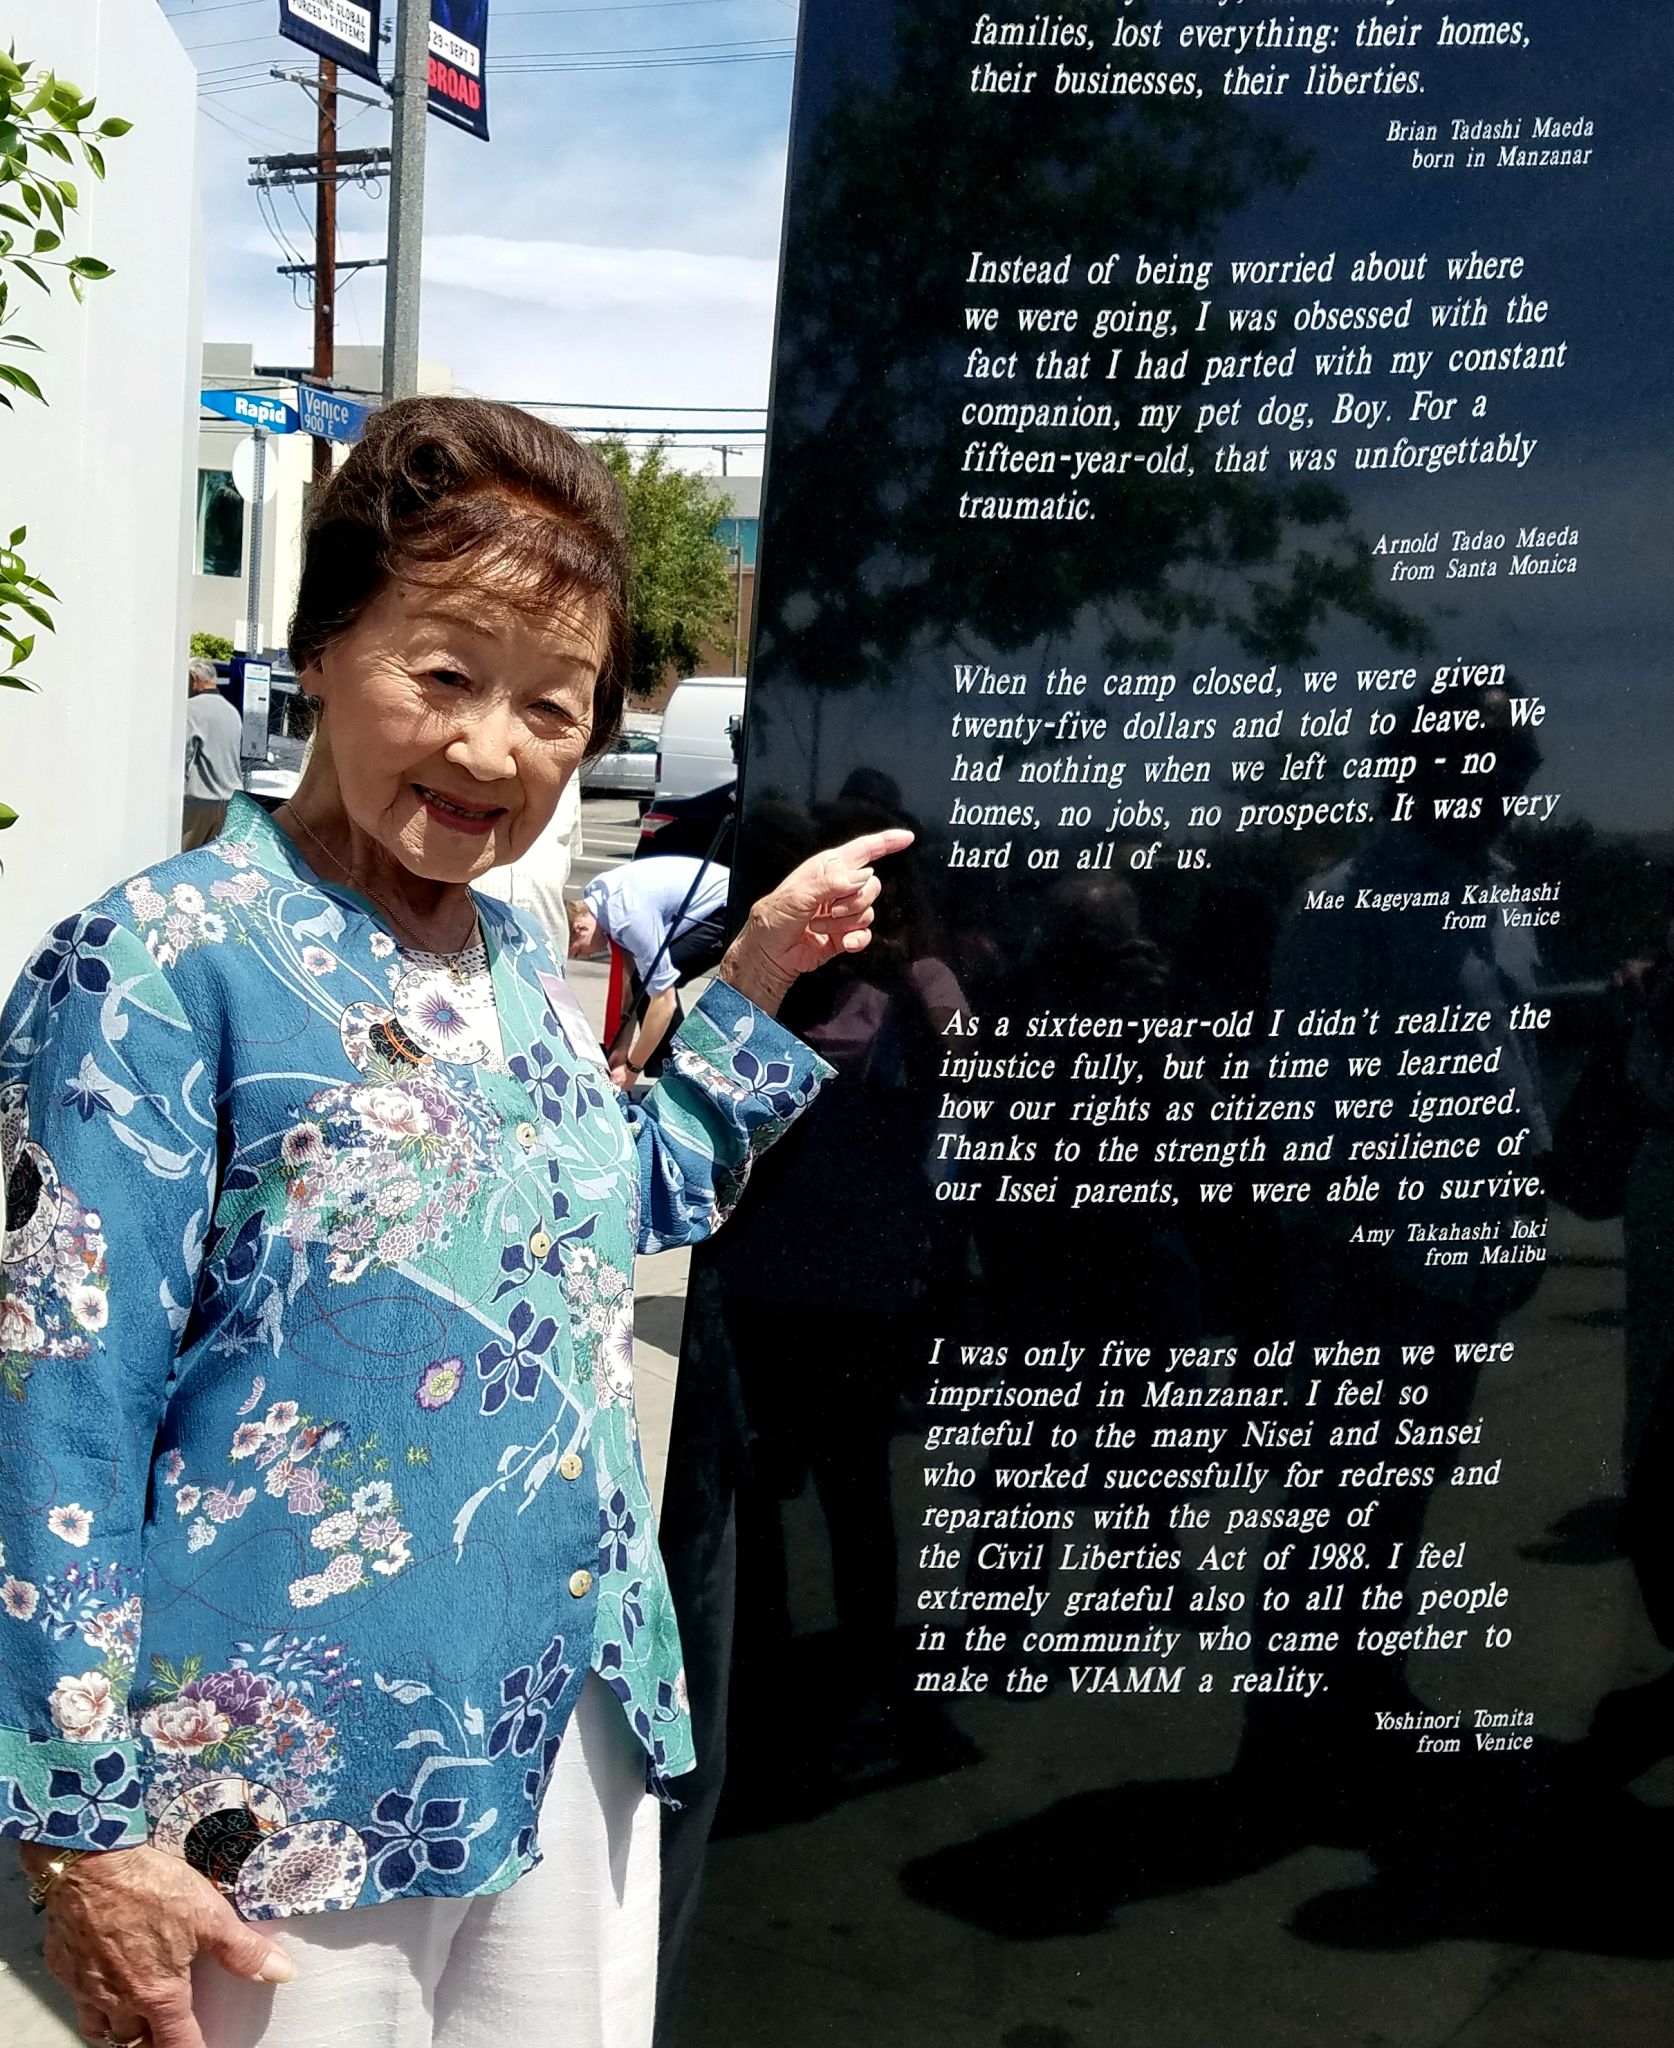 FORCES + SYSTEMS
29 - SEPT 3
BROAD
Rapid
Venice
900 E
families, lost everything: their homes,
their businesses, their liberties.
Brian Tadashi Maeda
born in Manzanar
Instead of being worried about where
we were going, I was obsessed with the
fact that I had parted with my constant
companion, my pet dog, Boy. For a
fifteen-year-old, that was unforgettably
traumatic.
Arnold Tadao Maeda
from Santa Monica
When the camp closed, we were given
twenty-five dollars and told to leave. We
had nothing when we left camp - no
homes, no jobs, no prospects. It was very
hard on all of us.
Mae Kageyama Kakehashi
from Venice
As a sixteen-year-old I didn't realize the
injustice fully, but in time we learned
how our rights as citizens were ignored.
Thanks to the strength and resilience of
our Issei parents, we were able to survive.
Amy Takahashi Ioki
from Malibu
I was only five years old when we were
imprisoned in Manzanar. I feel so
grateful to the many Nisei and Sansei
who worked successfully for redress and
reparations with the passage of
the Civil Liberties Act of 1988. I feel
extremely grateful also to all the people
in the community who came together to
make the VJAMM a reality.
Yoshinori Tomita
from Venice